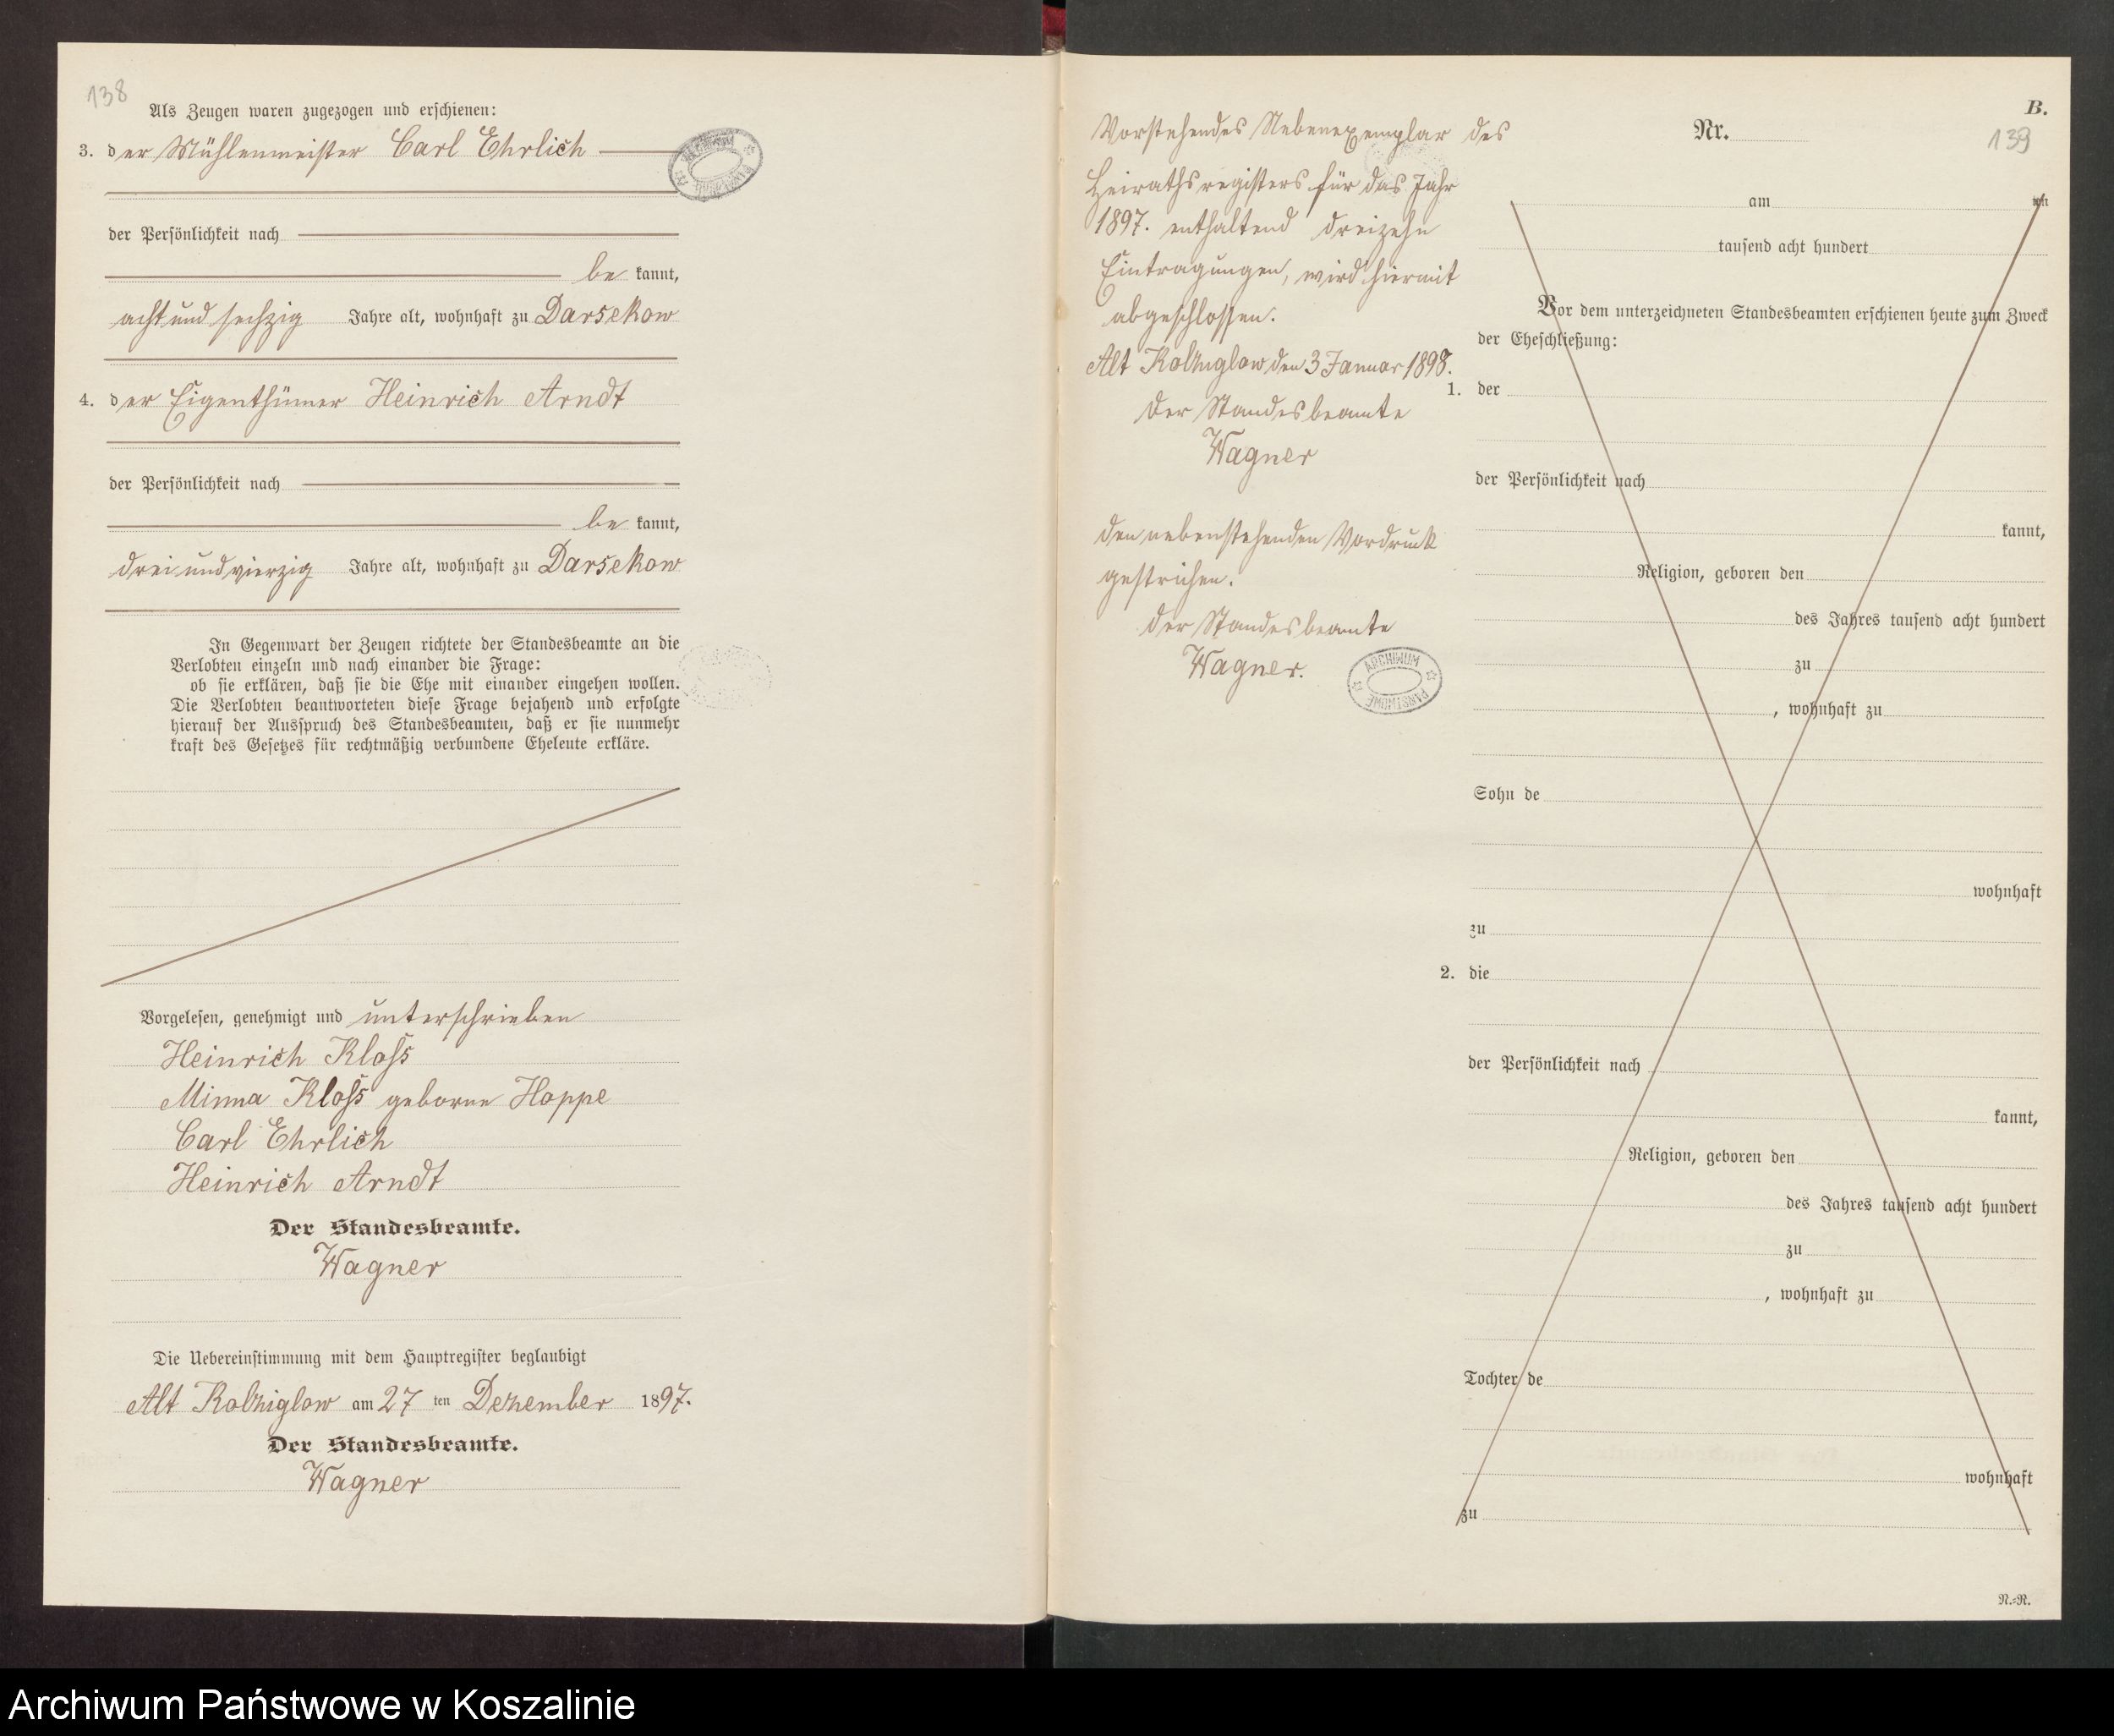 138
Als Zeugen waren zugezogen und erschienen:
3. der Mühlenmeister Carl Ehrlich
der Persönlichkeit nach
be kannt,
acht und sechzig Jahre alt, wohnhaft zu Darsekow
4. der Eigenthümer Heinrich Arndt
der Persönlichkeit nach
be kannt,
drei und vierzig Jahre alt, wohnhaft zu Darsekow
In Gegenwart der Zeugen richtete der Standesbeamte an die
Verlobten einzeln und nach einander die Frage:
ob sie erklären, daß sie die Ehe mit einander eingehen wollen.
Die Verlobten beantworteten diese Frage bejahend und erfolgte
hierauf der Ausspruch des Standesbeamten, daß er sie nunmehr
kraft des Gesetzes für rechtmäßig verbundene Eheleute erkläre.
Vorgelesen, genehmigt und unterschrieben
Heinrich Kloß
Minna Kloß geborne Hoppe
Carl Ehrlich
Heinrich Arndt
Der Standesbeamte.
Wagner
Die Uebereinstimmung mit dem Hauptregister beglaubigt
Alt Kolziglow am 27 ten Dezember 1897.
Der Standesbeamte.
Wagner
Vorstehendes Nebenexemplar des
Heirathsregisters für das Jahr
1897. enthaltend dreizehn
Eintragungen, wird hiermit
abgeschlossen.
Alt Kolziglow den 3 Januar 1898.
Der Standesbeamte
Wagner
Den nebenstehenden Vordruck
gestrichen.
Der Standesbeamte
Wagner.
ARCHIWUM PAŃSTWOWE
B.
Nr.
139
am ten
tausend acht hundert
Vor dem unterzeichneten Standesbeamten erschienen heute zum Zweck
der Eheschließung:
1. der
der Persönlichkeit nach
kannt,
Religion, geboren den
des Jahres tausend acht hundert
zu
, wohnhaft zu
Sohn de
wohnhaft
zu
2. die
der Persönlichkeit nach
kannt,
Religion, geboren den
des Jahres tausend acht hundert
zu
, wohnhaft zu
Tochter de
wohnhaft
zu
N.=R.
Archiwum Państwowe w Koszalinie